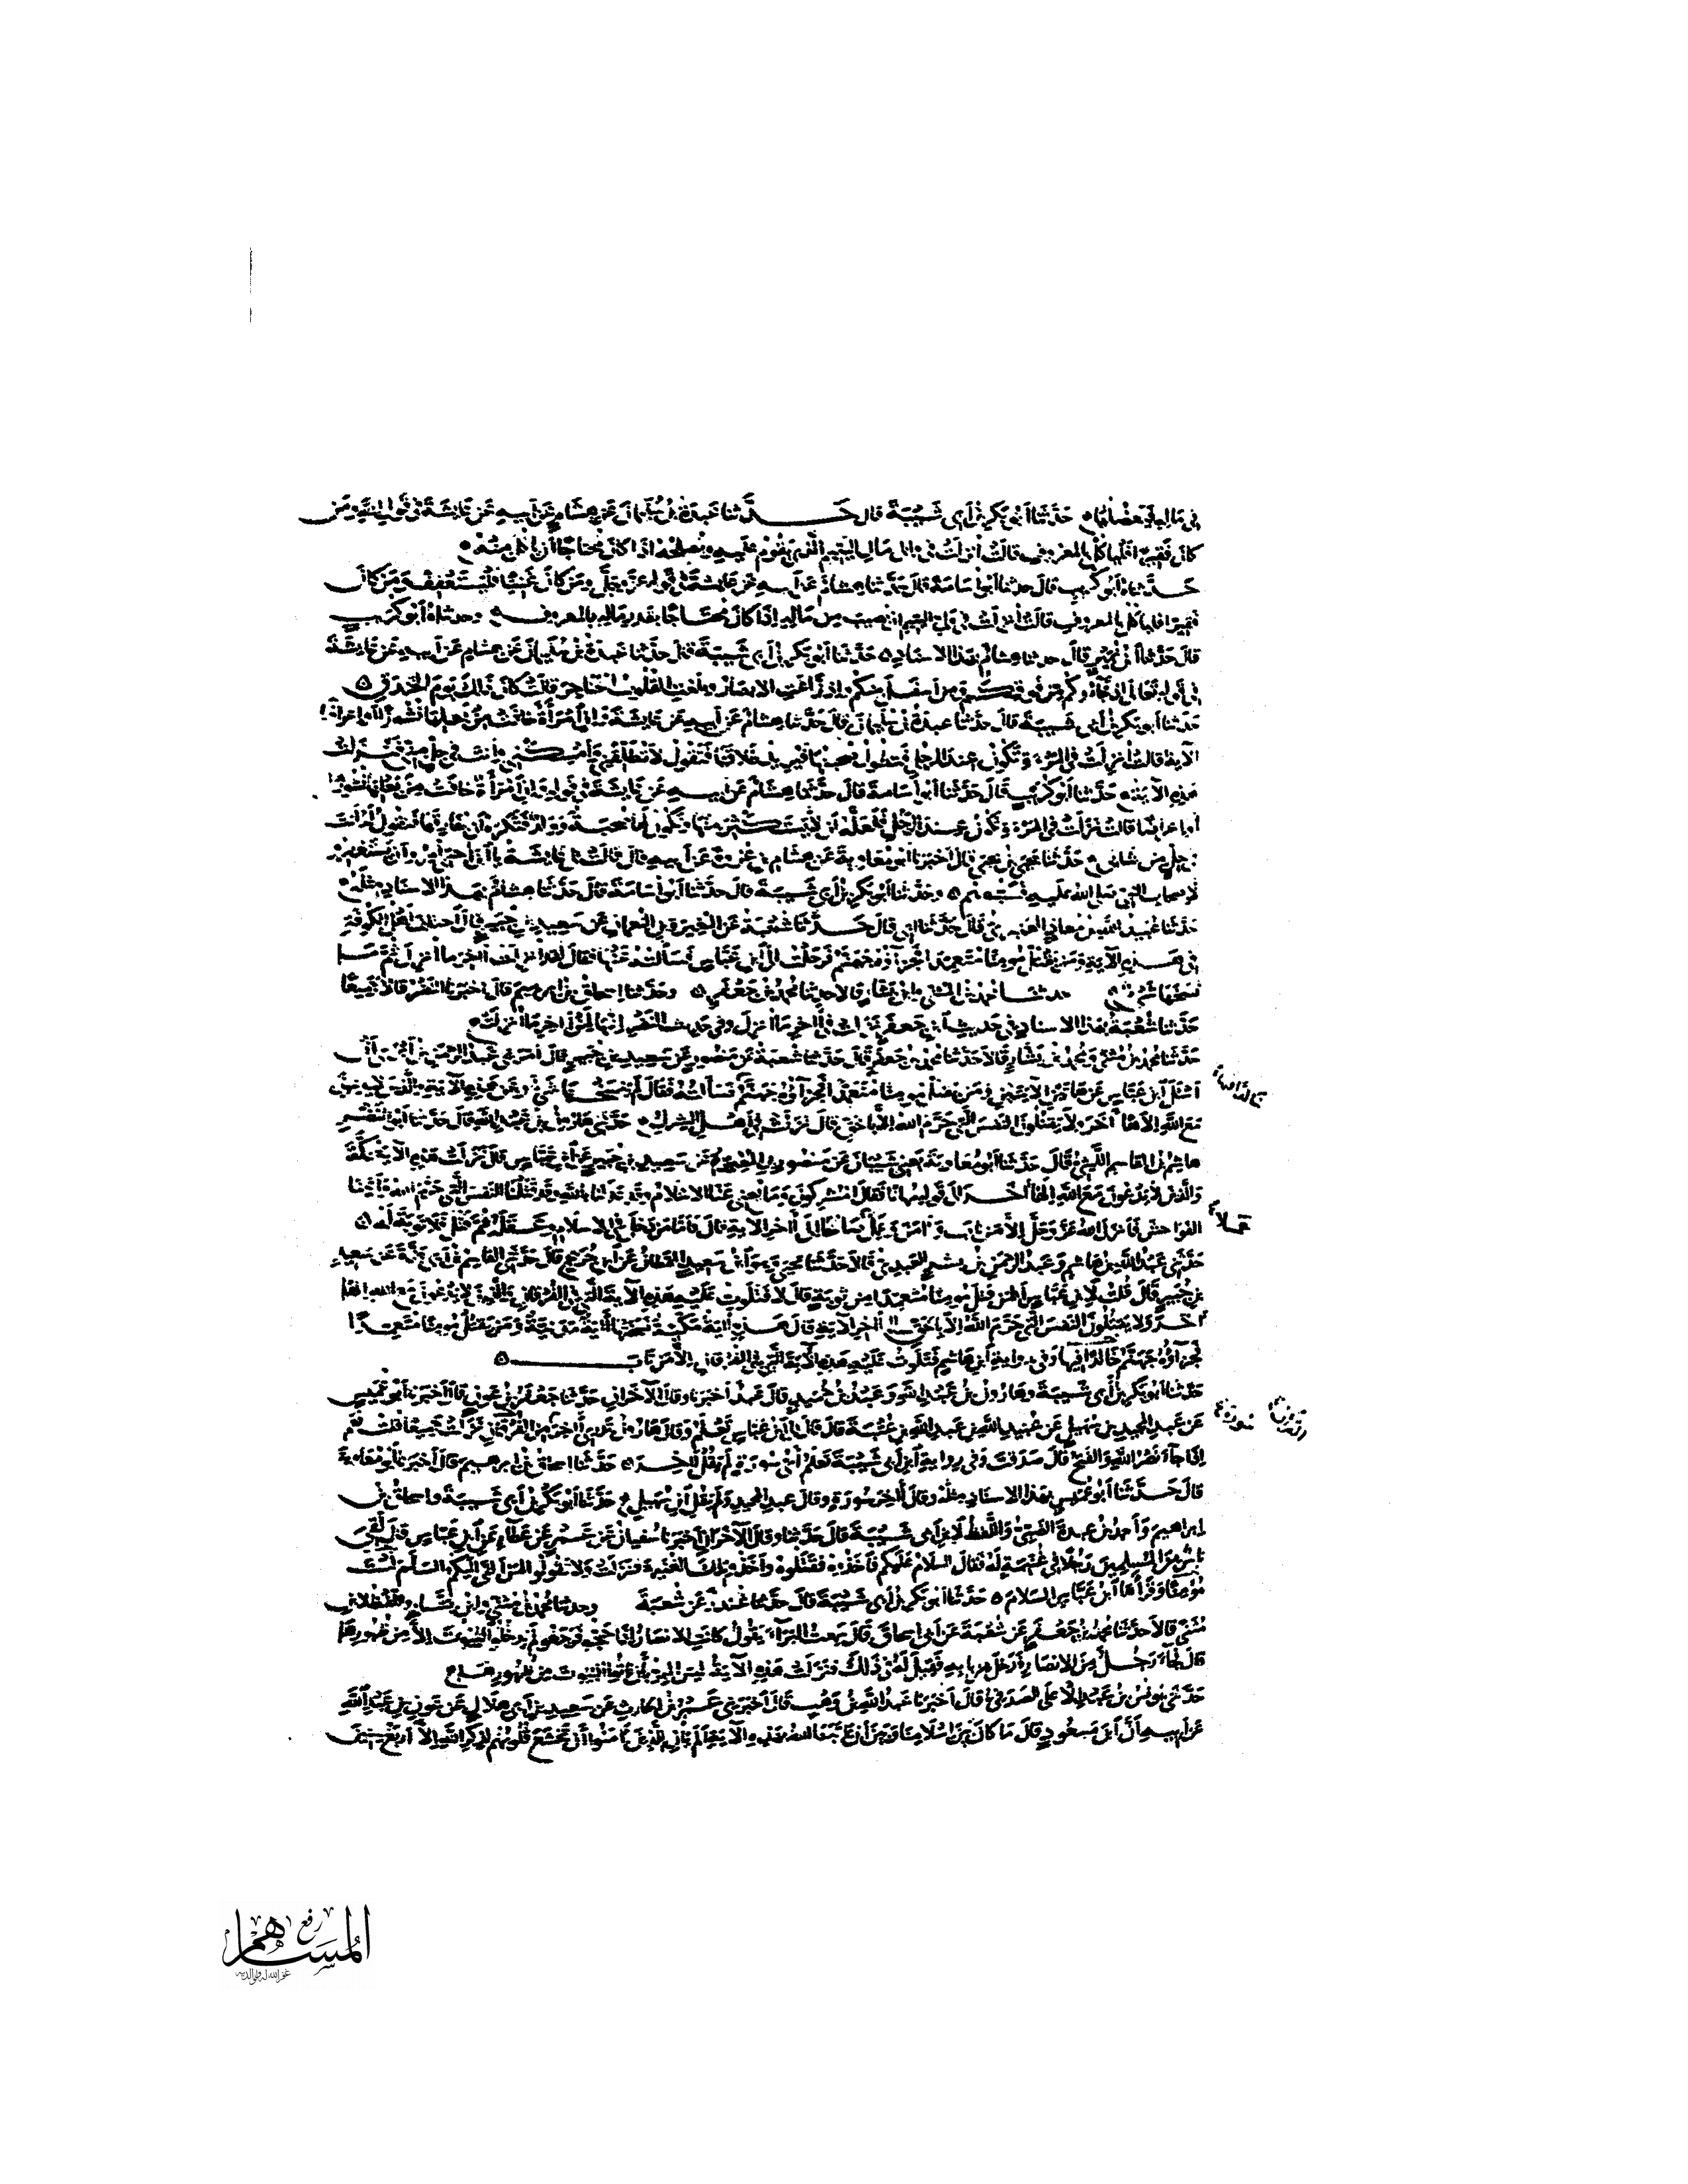 في ماله فيعضلها ۞ حدثنا أبو بكر بن أبي شيبة قال حدثنا عبدة بن سليمان عن هشام عن أبيه عن عايشة في قوله ومن
كان فقيرا فلياكل بالمعروف قالت أنزلت في والي مال اليتيم الذي يقوم عليه ويصلحه إذا كان محتاجا أن ياكل منه ۞
حدثناه أبو كريب قال حدثنا أبو أسامة قال حدثنا هشام عن أبيه عن عايشة في قوله عز وجل ومن كان غنيا فليستعفف ومن كان
فقيرا فلياكل بالمعروف قالت أنزلت في ولي اليتيم أن يصيب من ماله إذا كان محتاجا بقدر ماله بالمعروف ۞ وحدثناه أبو كريب
قال حدثنا ابن نمير قال حدثنا هشام بهذا الاسناد ۞ حدثنا أبو بكر بن أبي شيبة قال حدثنا عبدة بن سليمان عن هشام عن أبيه عن عايشة
في قوله تعالى إذ جاؤوكم من فوقكم ومن أسفل منكم وإذ زاغت الابصار وبلغت القلوب الحناجر قالت كان ذلك يوم الخندق ۞
حدثنا أبو بكر بن أبي شيبة قال حدثنا عبدة بن سليمان قال حدثنا هشام عن أبيه عن عايشة وإن امرأة خافت من بعلها نشوزا أو اعراضا
الآية قالت أنزلت في المرأة تكون عند الرجل فتطول صحبتها فيريد طلاقها فتقول لا تطلقني وأمسكني وأنت في حل مني فنزلت
هذه الآية ۞ حدثنا أبو كريب قال حدثنا أبو أسامة قال حدثنا هشام عن أبيه عن عايشة في قوله وإن امرأة خافت من بعلها نشوزا
أو اعراضا قالت نزلت في المرأة تكون عند الرجل فلعله أن لا يستكثر منها وتكون لها صحبة وولد فتكره أن يفارقها فتقول له أنت
في حل من شاني ۞ حدثنا يحيى بن يحيى قال أخبرنا أبو معاوية عن هشام بن عروة عن أبيه قال قالت لي عايشة يا ابن أختي أمروا أن يستغفروا
لاصحاب النبي صلى الله عليه فسبوهم ۞ وحدثنا أبو بكر بن أبي شيبة قال حدثنا أبو أسامة قال حدثنا هشام بهذا الاسناد مثله ۞
حدثنا عبيد الله بن معاذ العنبري قال حدثنا أبي قال حدثنا شعبة عن المغيرة بن النعمان عن سعيد بن جبير قال اختلف أهل الكوفة
في هذه الآية ومن يقتل مومنا متعمدا فجزاؤه جهنم فرحلت الى ابن عباس فسألته عنها فقال لقد أنزلت آخر ما أنزل ثم ما
نسخها شيء ۞ حدثنا محمد بن المثنى وابن بشار قالا حدثنا محمد بن جعفر ۞ وحدثنا إسحاق بن إبرهيم قال أخبرنا النضر قالا جميعا
حدثنا شعبة بهذا الاسناد في حديث ابن جعفر نزلت في آخر ما أنزل وفي حديث النضر إنها لمن آخر ما أنزلت ۞
حدثنا محمد بن مثنى ومحمد بن بشار قالا حدثنا محمد بن جعفر قال حدثنا شعبة عن منصور عن سعيد بن جبير قال أمرني عبد الرحمن بن أبزى أن
أسئل ابن عباس عن هاتين الآيتين ومن يقتل مومنا متعمدا فجزاؤه جهنم فسألته فقال لم ينسخها شيء وعن هذه الآية والذين لا يدعون
مع الله إلاها آخر ولا يقتلون النفس التي حرم الله إلا بالحق قال نزلت في أهل الشرك ۞ حدثني هارون بن عبد الله قال حدثنا أبو النضر
هاشم بن القاسم الليثي قال حدثنا أبو معاوية يعني شيبان عن منصور بن المعتمر عن سعيد بن جبير عن ابن عباس قال نزلت هذه الآية بمكة
والذين لا يدعون مع الله إلها آخر الى قوله مهانا فقال المشركون وما يغني عنا الاسلام وقد عدلنا بالله وقد قتلنا النفس التي حرم الله وأتينا
الفواحش فأنزل الله عز وجل إلا من تاب وآمن وعمل صالحا إلى آخر الآية قال فأما من دخل في الاسلام وعقله ثم قتل فلا توبة له ۞
حدثني عبد الله بن هاشم وعبد الرحمن بن بشر العبدي قالا حدثنا يحيى وهو ابن سعيد القطان عن ابن جريج قال حدثني القاسم بن أبي بزة عن سعيد
بن جبير قال قلت لابن عباس ألمن قتل مومنا متعمدا من توبة قال لا فتلوت عليه هذه الآية التي في الفرقان والذين لا يدعون مع الله إلها
آخر ولا يقتلون النفس التي حرم الله إلا بالحق إلى آخر الآية قال هذه آية مكية نسختها آية مدنية ومن يقتل مومنا متعمدا
فجزاؤه جهنم خالدا فيها وفي رواية ابن هاشم فتلوت عليه هذه الآية التي في الفرقان إلا من تاب ۞
حدثنا أبو بكر بن أبي شيبة وهارون بن عبد الله وعبد بن حميد قال عبد أخبرنا وقال الآخران حدثنا جعفر بن عون قال أخبرنا أبو عميس
عن عبد المجيد بن سهيل عن عبيد الله بن عبد الله بن عتبة قال قال لي ابن عباس تعلم وقال هارون تدري آخر سورة من القرآن نزلت جميعا قلت نعم
إذا جاء نصر الله والفتح قال صدقت وفي رواية ابن أبي شيبة تعلم أي سورة ولم يقل آخر ۞ حدثنا إسحاق بن إبرهيم قال أخبرنا أبو معاوية
قال حدثنا أبو عميس بهذا الاسناد مثله وقال آخر سورة وقال عبد المجيد ولم يقل ابن سهيل ۞ حدثنا أبو بكر بن أبي شيبة وإسحاق بن
إبراهيم وأحمد بن عبدة الضبي واللفظ لابن أبي شيبة قال حدثنا وقال الآخران أخبرنا سفيان عن عمرو عن عطاء عن ابن عباس قال لقي
ناس من المسلمين رجلا في غنيمة له فقال السلام عليكم فأخذوه فقتلوه وأخذوا تلك الغنيمة فنزلت ولا تقولوا لمن ألقى إليكم السلم لست
مؤمنا وقرأها ابن عباس السلام ۞ حدثنا أبو بكر بن أبي شيبة قال حدثنا غندر عن شعبة وحدثنا محمد بن مثنى وابن بشار واللفظ لابن
مثنى قالا حدثنا محمد بن جعفر عن شعبة عن أبي إسحاق قال سمعت البراء يقول كانت الانصار إذا حجوا فرجعوا لم يدخلوا البيوت إلا من ظهورها
قال فجاء رجل من الانصار فدخل من بابه فقيل له في ذلك فنزلت هذه الآية ليس البر بأن تأتوا البيوت من ظهورها ۞
حدثني يونس بن عبد الاعلى الصدفي قال أخبرنا عبد الله بن وهب قال أخبرني عمرو بن الحارث عن سعيد بن أبي هلال عن عون بن عبد الله
عن أبيه أن ابن مسعود قال ما كان بين إسلامنا وبين أن عاتبنا الله بهذه الآية ألم يان للذين آمنوا أن تخشع قلوبهم لذكر الله إلا أربع سنين
سورة
المساهم
رفع
غفر الله له ولوالديه